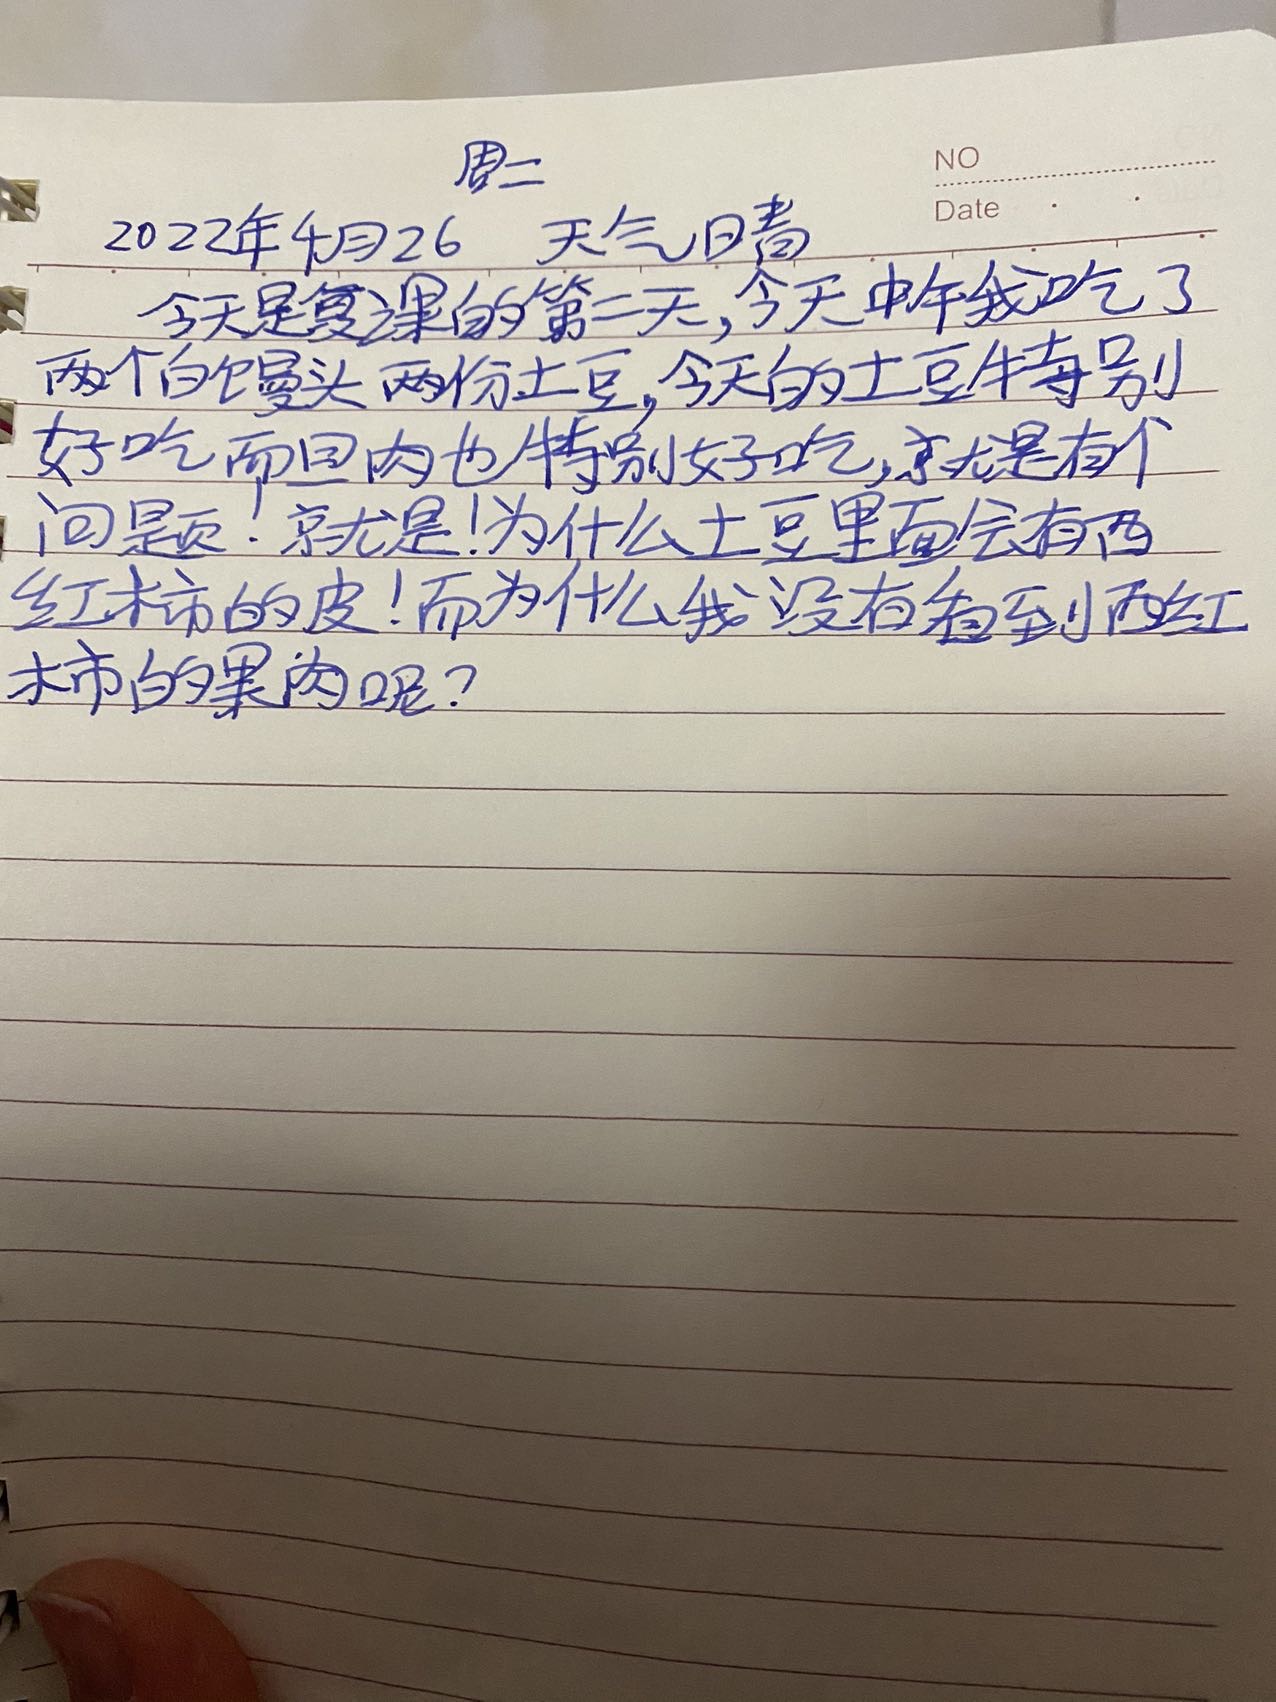 NO
Date
周二
2022年4月26 天气晴
今天是复课的第二天,今天中午我吃了
两个白馒头两份土豆,今天的土豆特别
好吃而且肉也特别好吃,就是有个
问题!就是!为什么土豆里面会有西
红柿的皮!而为什么我没有看到西红
柿的果肉呢?